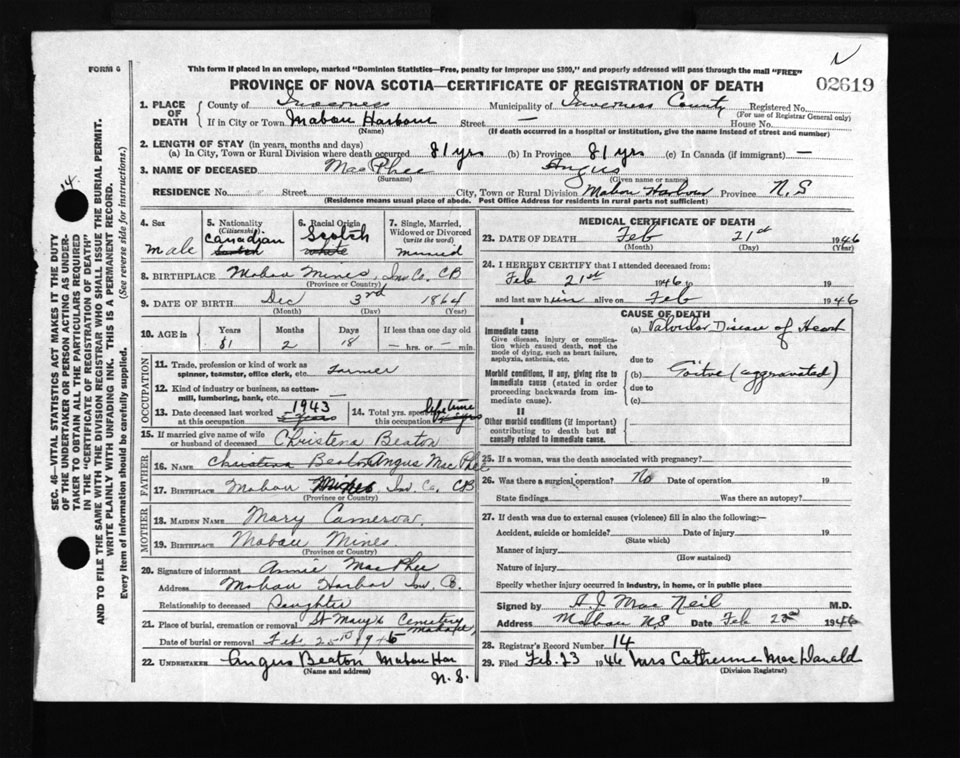 N
FORM 6
This form if placed in an envelope, marked "Dominion Statistics—Free, penalty for improper use $300," and properly addressed will pass through the mail "FREE"
PROVINCE OF NOVA SCOTIA—CERTIFICATE OF REGISTRATION OF DEATH
02619
1. PLACE OF DEATH
County of Inverness Municipality of Inverness County Registered No.
(For use of Registrar General only)
If in City or Town Mabou Harbour Street — House No.
(Name) (If death occurred in a hospital or institution, give the name instead of street and number)
2. LENGTH OF STAY (in years, months and days)
(a) In City, Town or Rural Division where death occurred 81 yrs (b) In Province 81 yrs (c) In Canada (if immigrant) —
3. NAME OF DECEASED MacPhee Angus
(Surname) (Given name or names)
RESIDENCE No. Street City, Town or Rural Division Mabou Harbour Province N.S
(Residence means usual place of abode. Post Office Address for residents in rural parts not sufficient)
4. Sex
male
5. Nationality
(Citizenship)
Canadian
Scotch
6. Racial Origin
Scotch
white
7. Single, Married, Widowed or Divorced
(write the word)
Married
8. BIRTHPLACE Mabou Mines, Inv Co. CB
(Province or Country)
9. DATE OF BIRTH Dec 3rd 1864
(Month) (Day) (Year)
10. AGE in
Years Months Days If less than one day old
81 2 18 — hrs. or — min.
OCCUPATION
11. Trade, profession or kind of work as spinner, teamster, office clerk, etc. Farmer
12. Kind of industry or business, as cotton-mill, lumbering, bank, etc. —
13. Date deceased last worked at this occupation 1943
14. Total yrs. spent this occupation lifetime
15. If married give name of wife or husband of deceased Christena Beaton
FATHER
16. NAME Christena Beaton Angus MacPhee
17. BIRTHPLACE Mabou Mines Inv Co. CB
(Province or Country)
MOTHER
18. MAIDEN NAME Mary Cameron.
19. BIRTHPLACE Mabou Mines
(Province or Country)
20. Signature of informant Annie MacPhee
Address Mabou Harbor Inv. B.
Relationship to deceased Daughter
21. Place of burial, cremation or removal St Mary's Cemetery
Date of burial or removal Feb.
22. UNDERTAKER Angus Beaton Mabou Har
(Name and address)
N.S.
MEDICAL CERTIFICATE OF DEATH
23. DATE OF DEATH Feb 21st 1946
(Month) (Day) (Year)
24. I HEREBY CERTIFY that I attended deceased from:
Feb 21st 1946 to 19
and last saw him alive on Feb 1946
CAUSE OF DEATH
I
Immediate cause
Give disease, injury or complication which caused death, not the mode of dying, such as heart failure, asphyxia, asthenia, etc.
(a) Valvular Disease of Heart
due to
Morbid conditions, if any, giving rise to immediate cause (stated in order proceeding backwards from immediate cause).
(b) Goitre (aggravated)
due to
(c)
II
Other morbid conditions (if important) contributing to death but not causally related to immediate cause.
25. If a woman, was the death associated with pregnancy?
26. Was there a surgical operation? No Date of operation 19
State findings Was there an autopsy?
27. If death was due to external causes (violence) fill in also the following:—
Accident, suicide or homicide? Date of injury 19
(State which)
Manner of injury
(How sustained)
Nature of injury
Specify whether injury occurred in industry, in home, or in public place
Signed by A. J. MacNeil M.D.
Address Mabou N.S Date Feb 1946
28. Registrar's Record Number 14
29. Filed Feb. 23 1946 Mrs Catherine MacDonald
(Division Registrar)
14.
SEC. 46—VITAL STATISTICS ACT MAKES IT THE DUTY
OF THE UNDERTAKER OR PERSON ACTING AS UNDERTAKER TO OBTAIN ALL THE PARTICULARS REQUIRED
IN THE "CERTIFICATE OF REGISTRATION OF DEATH"
AND TO FILE THE SAME WITH THE DIVISION REGISTRAR WHO SHALL ISSUE THE BURIAL PERMIT.
WRITE PLAINLY WITH UNFADING INK. THIS IS A PERMANENT RECORD.
Every item of information should be carefully supplied. (See reverse side for instructions.)